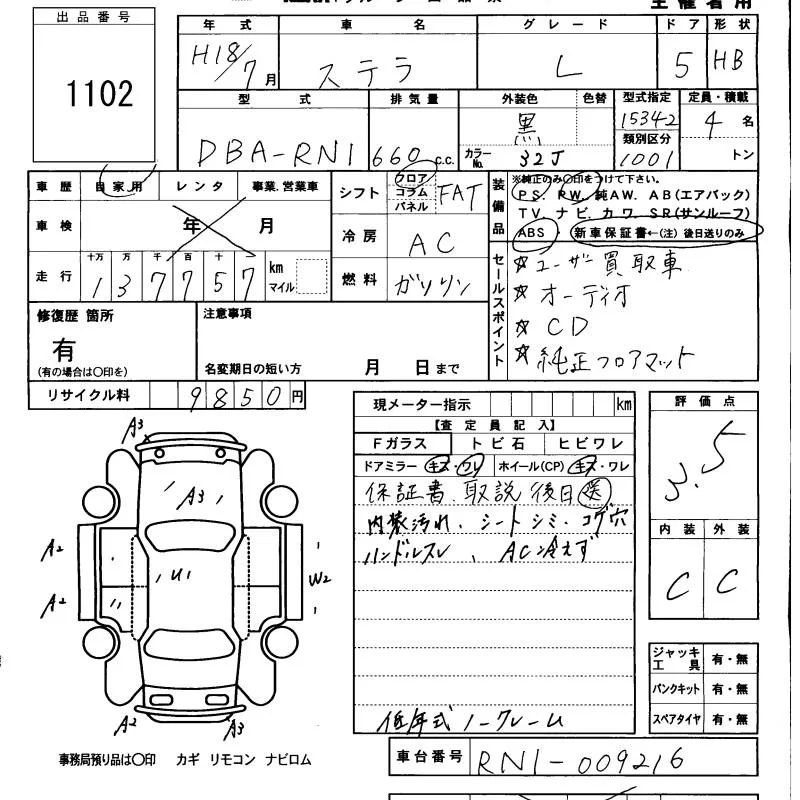 出品番号
1102
年式 車名 グレード ドア 形状
H18/7月 ステラ L 5 HB
型式 排気量 外装色 色替 型式指定 定員・積載
DBA-RN1 660c.c. 黒 15342 4名
カラーNo. 32J 類別区分 1001 トン
車歴 自家用 レンタ 事業.営業車
車検 年 月
走行 十万 万 千 百 十
137757 km マイル
シフト フロア コラム パネル FAT
冷房 AC
燃料 ガソリン
装備品
※純正のみ〇印をつけて下さい。
PS. RW. 純AW. AB(エアバック)
TV. ナビ. カワ. SR(サンルーフ)
ABS・新車保証書←(注) 後日送りのみ
セールスポイント
☆ユーザー買取車
☆オーディオ
☆CD
☆純正フロアマット
修復歴 箇所
有
(有の場合は〇印を)
注意事項
名変期日の短い方 月 日まで
リサイクル料 9850円
現メーター指示 km
【査定員記入】
Fガラス トビ石 ヒビワレ
ドアミラー キズ・ワレ ホイール(CP) キズ・ワレ
保証書.取説 後日送
内装汚れ、シートシミ・コゲ穴
ハンドルスレ、AC冷えず
低年式ノークレーム
評価点
3.5
内装 外装
C C
ジャッキ工具 有・無
パンクキット 有・無
スペアタイヤ 有・無
A3
A3
A2
U1
W2
A2
A2
A3
事務局預り品は〇印 カギ リモコン ナビロム
車台番号 RN1-009216